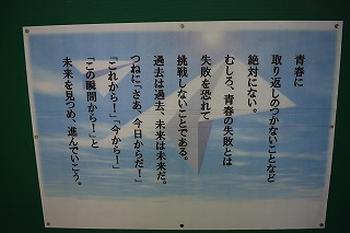 青春に
取り返しのつかないことなど
絶対にない。
むしろ、青春の失敗とは
失敗を恐れて
挑戦しないことである。
過去は過去、未来は未来だ。
つねに「さあ、今日からだ!」
「これから!」「今から!」
「この瞬間から!」と
未来を見つめ、進んでいこう。